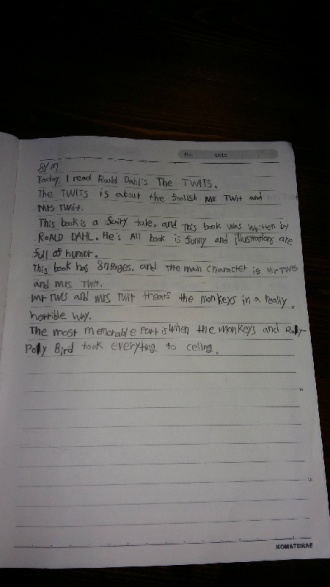 No. Date
8/19
Today, I read Roald Dahl's The TWITS.
The TWITS is about the foolish Mr Twit and
Mrs Twit.
This book is a fairy tale, and This book was written by
ROALD DAHL. He's All book is funny and illustrations are
full of humor.
This book has 87 Pages, and the main character is Mr TWIS
and Mrs Twit.
Mr TWIS and Mrs Twit threats the monkeys in a Really
horrible way.
The most memorable Part is when the monkeys and Roly-
Poly Bird took everyting to celing.